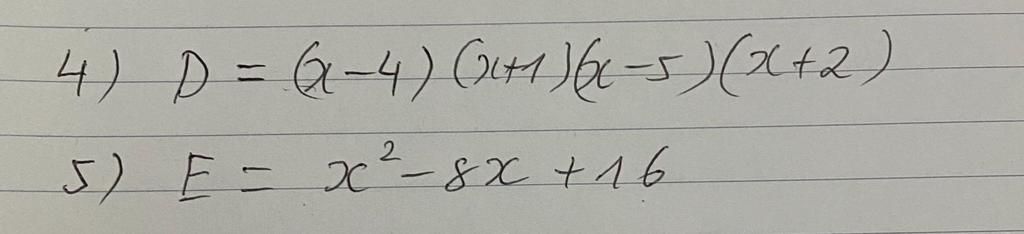 4) D = (x-4) (x+1)(x-5)(x+2)
5) E = x²-8x+16